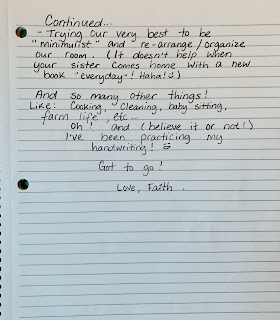 Continued...
- Trying our very best to be
"minimulist" and re-arrange/organize
our room. (It doesn't help when
your sister comes home with a new
book "everyday"! Haha! ☺)
And so many other things!
Like: Cooking, Cleaning, baby sitting,
farm life, etc...
Oh! and (believe it or not!)
I've been practicing my
handwriting! ☺
Got to go!
Love, Faith.